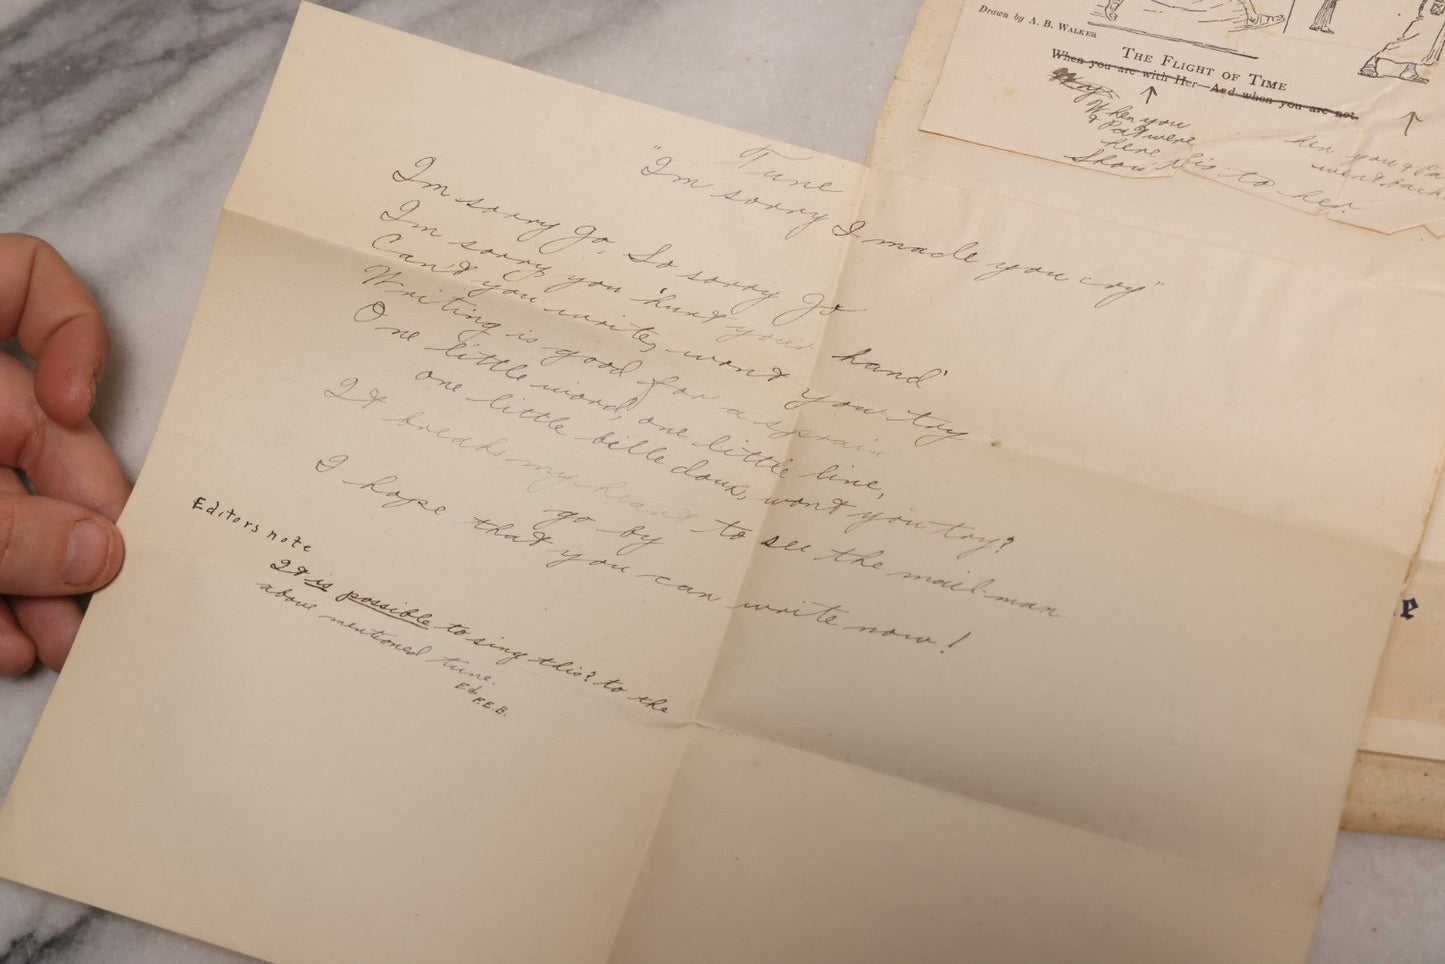 Tune
"Im sorry I made you cry"
Im sorry Jo, So sorry Jo
Im sorry you 'hurt your hand'
Can't you write, wont you try
Writing is good for a sprain
One little word, one little line,
one little bille doux, wont you try?
It breaks my heart to see the mail-man
go by
I hope that you can write now!
Editors note
It is possible to sing this? to the
above mentioned tune.
Ed.
F.E.B.
Drawn by A. B. WALKER
THE FLIGHT OF TIME
When you are with Her—And when you are not.
When you
& Pat were
here
Show this to her.
hen you & Pa
went back
e